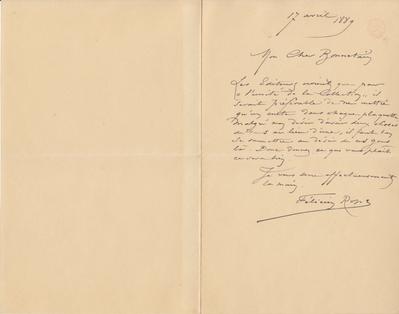 17 avril 1889
Mon Cher Bonnetain
Les Editeurs croient que pour
« l'unité de la Collection » il
serait préférable de ne mettre
qu'un dans chaque plaquette
Malgré mon désir d'avoir deux choses
de vous au lieu d'une, il faut bien
se soumettre au désir de ces gens
là. Donc donnez ce que vous plaît
ce sera bien
Je vous serre affectueusement
la main.
Félicien Rops